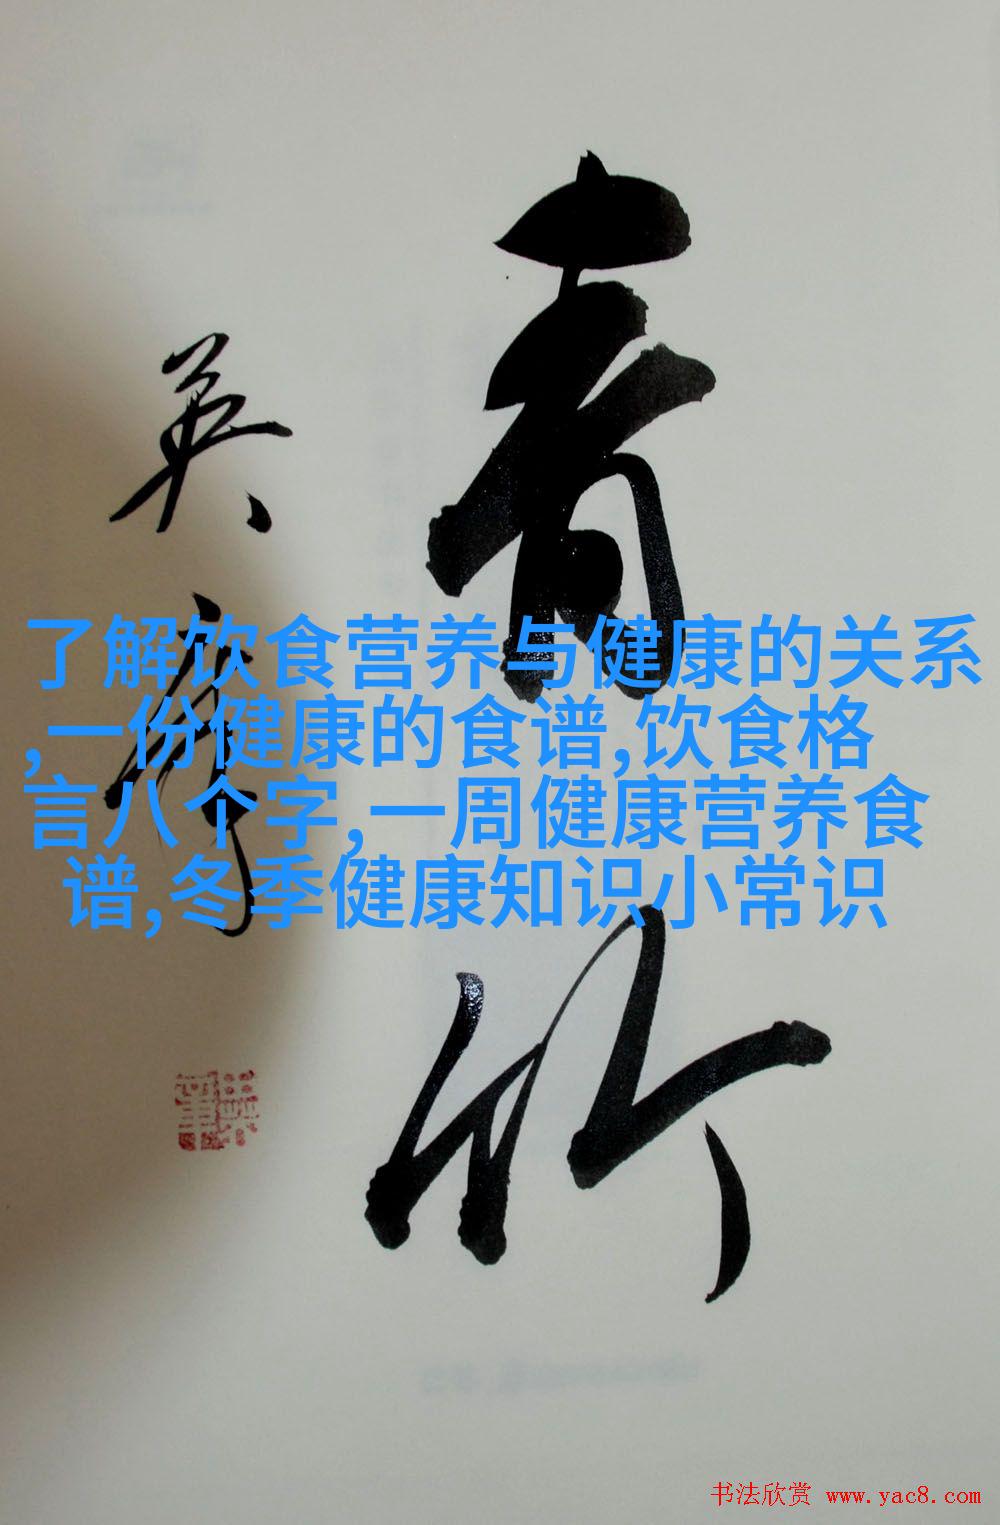 青竹
英
了解饮食营养与健康的关系
,一份健康的食谱,饮食格
言八个字,一周健康营养食
谱,冬季健康知识小常识
书法欣赏 www.yac8.com